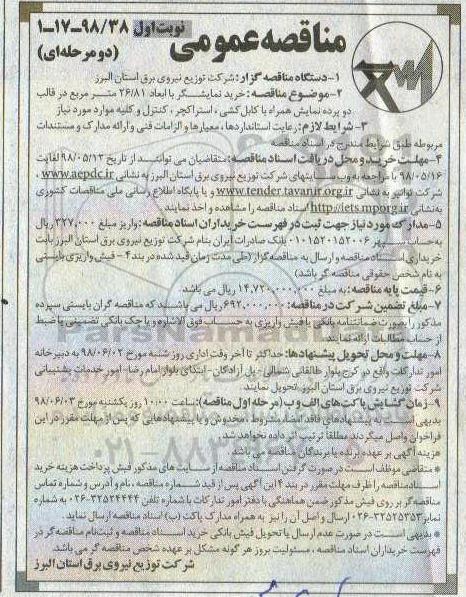 مناقصه عمومی
نوبت اول ۹۸/۳۸-۱۷-۱
(دو مرحله‌ای)
۱-دستگاه مناقصه گزار: شرکت توزیع نیروی برق استان البرز
۲-موضوع مناقصه: خرید نمایشگر با ابعاد ۲۶/۸۱ متر در قالب
دو پرده نمایش همراه با کابل کشی ، استراکچر ، کنترل و کلیه موارد مورد نیاز
۳- شرایط لازم: رعایت استانداردها ، معیارها و الزامات فنی و ارائه مدارک و مستندات
مربوطه طبق شرایط مندرج در اسناد مناقصه
۴-مهلت خرید و محل دریافت اسناد مناقصه: متقاضیان می توانند از تاریخ ۹۸/۰۵/۱۲ لغایت
۹۸/۰۵/۱۶ با مراجعه به وب سایتهای شرکت توزیع نیروی برق استان البرز به نشانی www.aepdc.ir ،
شرکت توانیر به نشانی www.tender.tavanir.org.ir و یا پایگاه اطلاع رسانی ملی مناقصات کشوری
به نشانی http://iets.mporg.ir اسناد مناقصه را مشاهده و اخذ نمایند
۵-مدارک مورد نیاز جهت ثبت در فهرست خریداران اسناد مناقصه: واریز مبلغ ۳۲۷,۰۰۰ ریال
به حساب سپهر ۰۱۰۱۵۲۰۱۵۲۰۰۶ بانک صادرات ایران بنام شرکت توزیع نیروی برق استان البرز بابت
خریداری اسناد مناقصه و ارسال به مناقصه گزار (طی مدت زمان قید شده در بند ۴ - فیش واریزی بایستی
به نام شخص حقوقی مناقصه گر باشد)
۶-قیمت پایه مناقصه: به مبلغ ۱۴,۷۲۰,۰۰۰,۰۰۰ ریال می باشد
۷-مبلغ تضمین شرکت در مناقصه: ۶۹۲,۰۰۰,۰۰۰ ریال می باشد که مناقصه گران بایستی سپرده
مذکور را بصورت ضمانتنامه بانکی یا فیش واریزی به حساب فوق الاشاره و یا چک بانکی تضمینی یا ضبط
از حساب مطالبات ارائه نمایند
۸-مهلت و محل تحویل پیشنهادها: حداکثر تا آخر وقت اداری روز شنبه مورخ ۹۸/۰۶/۰۲ به دبیرخانه
امور تدارکات واقع در کرج-بلوار طالقانی شمالی- پل آزادگان - ابتدای بلوار امام رضا -امور خدمات پشتیبانی
شرکت توزیع نیروی برق استان البرز تحویل نمایند
۹-زمان گشایش پاکت های الف و ب (مرحله اول مناقصه): ساعت ۱۰:۰۰ روز یکشنبه مورخ ۹۸/۰۶/۰۳
بدیهی است به پیشنهادهای فاقد امضاء، مشروط ، مخدوش و یا پیشنهادهایی که پس از مهلت مقرر در این
فراخوان واصل میگردند مطلقا ترتیب اثر داده نخواهد شد
هزینه آگهی بر عهده برنده یا برندگان مناقصه می باشد
* متقاضی موظف است در صورت گرفتن اسناد مناقصه از سایت های مذکور فیش پرداخت هزینه خرید
اسناد مناقصه را ظرف مهلت مقرر در بند ۴ این آگهی پس از قید شماره مناقصه ، نام و آدرس و شماره تماس
مناقصه گر بر روی فیش مذکور ضمن هماهنگی با دفتر امور تدارکات با شماره تلفن ۳۲۵۲۴۴۴۴-۰۲۶ به شماره
نمابر ۳۲۵۲۵۳۵۳-۰۲۶ ، ارسال و اصل آن را نیز به همراه مدارک پاکت (ب) اسناد مناقصه ارسال نماید.
* بدیهی است در صورت عدم ارسال یا تحویل فیش بانکی خرید اسناد مناقصه و ثبت نام مناقصه گر در
فهرست خریداران اسناد مناقصه ، مسئولیت بروز هر گونه مشکل بر عهده شخص مناقصه گر می باشد.
شرکت توزیع نیروی برق استان البرز